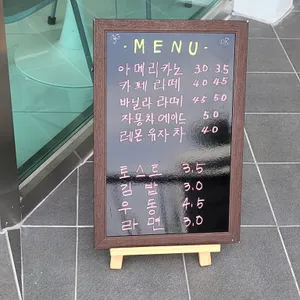 · MENU ·
아메리카노 3.0 3.5
카페라떼 4.0 4.5
바닐라라떼 4.5 5.0
자몽치에이드 5.0
레몬유자차 4.0
토스트 3.5
김밥 3.0
우동 4.5
라면 3.0